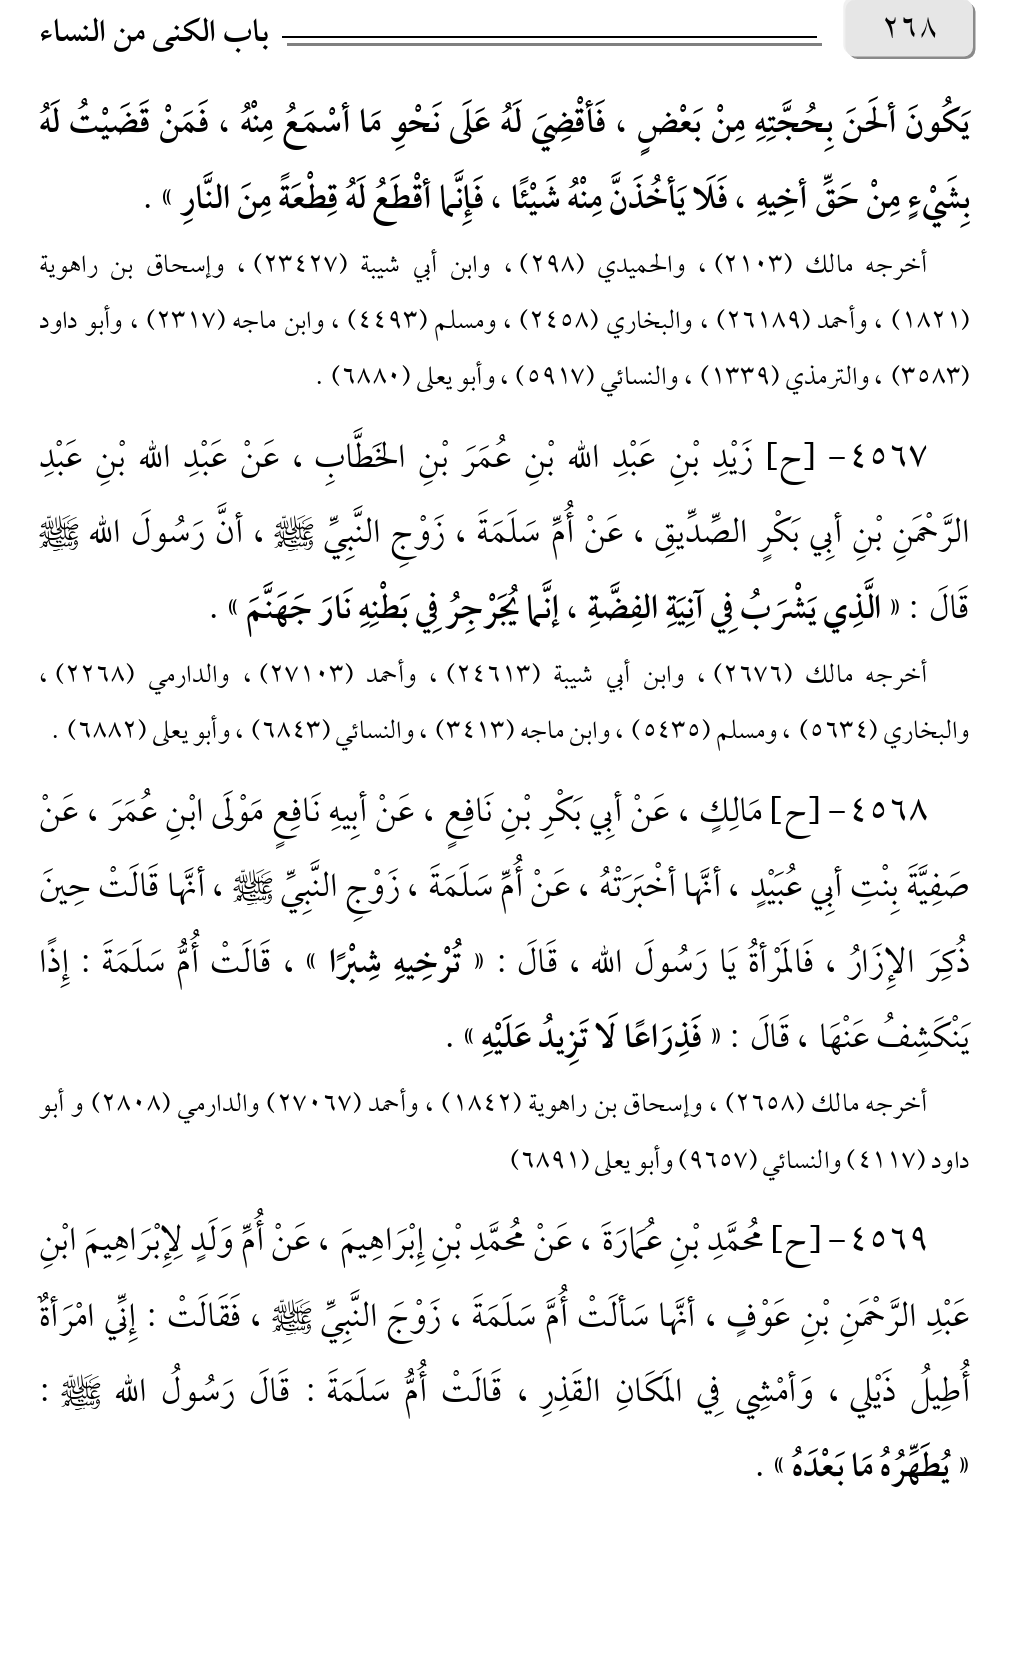 ٢٦٨ باب الكنى من النساء
يَكُونَ أَلَحَنَ بِحُجَّتِهِ مِنْ بَعْضٍ ، فَأَقْضِيَ لَهُ عَلَى نَحْوِ مَا أَسْمَعُ مِنْهُ ، فَمَنْ قَضَيْتُ لَهُ
بِشَيْءٍ مِنْ حَقِّ أَخِيهِ ، فَلَا يَأخُذَنَّ مِنْهُ شَيْئًا ، فَإِنَّما أَقْطَعُ لَهُ قِطْعَةً مِنَ النَّارِ » .
أخرجه مالك (٢١٠٣) ، والحميدي (٢٩٨) ، وابن أبي شيبة (٢٣٤٢٧) ، وإسحاق بن راهوية
(١٨٢١) ، وأحمد (٢٦١٨٩) ، والبخاري (٢٤٥٨) ، ومسلم (٤٤٩٣) ، وابن ماجه (٢٣١٧) ، وأبو داود
(٣٥٨٣) ، والترمذي (١٣٣٩) ، والنسائي (٥٩١٧) ، وأبو يعلى (٦٨٨٠) .
٤٥٦٧- [ح] زَيْدِ بْنِ عَبْدِ الله بْنِ عُمَرَ بْنِ الخَطَّابِ ، عَنْ عَبْدِ الله بْنِ عَبْدِ
الرَّحْمَنِ بْنِ أبِي بَكْرٍ الصِّدِّيقِ ، عَنْ أُمِّ سَلَمَةَ ، زَوْجِ النَّبِيِّ ﷺ ، أنَّ رَسُولَ الله ﷺ
قَالَ : « الَّذِي يَشْرَبُ فِي آنِيَةِ الفِضَّةِ ، إنَّما يُجَرْجِرُ فِي بَطْنِهِ نَارَ جَهَنَّمَ » .
أخرجه مالك (٢٦٧٦) ، وابن أبي شيبة (٢٤٦١٣) ، وأحمد (٢٧١٠٣) ، والدارمي (٢٢٦٨) ،
والبخاري (٥٦٣٤) ، ومسلم (٥٤٣٥) ، وابن ماجه (٣٤١٣) ، والنسائي (٦٨٤٣) ، وأبو يعلى (٦٨٨٢) .
٤٥٦٨- [ح] مَالِكٍ ، عَنْ أبِي بَكْرِ بْنِ نَافِعٍ ، عَنْ أبِيهِ نَافِعٍ مَوْلَى ابْنِ عُمَرَ ، عَنْ
صَفِيَّةَ بِنْتِ أبِي عُبَيْدٍ ، أنَّها أخْبَرَتْهُ ، عَنْ أُمِّ سَلَمَةَ ، زَوْجِ النَّبِيِّ ﷺ ، أنَّها قَالَتْ حِينَ
ذُكِرَ الإِزَارُ ، فَالمَرْأةُ يَا رَسُولَ الله ، قَالَ : « تُرْخِيهِ شِبْرًا » ، قَالَتْ أُمُّ سَلَمَةَ : إِذًا
يَنْكَشِفُ عَنْهَا ، قَالَ : « فَذِرَاعًا لَا تَزِيدُ عَلَيْهِ » .
أخرجه مالك (٢٦٥٨) ، وإسحاق بن راهوية (١٨٤٢) ، وأحمد (٢٧٠٦٧) والدارمي (٢٨٠٨) و أبو
داود (٤١١٧) والنسائي (٩٦٥٧) وأبو يعلى (٦٨٩١)
٤٥٦٩- [ح] مُحَمَّدِ بْنِ عُمَارَةَ ، عَنْ مُحَمَّدِ بْنِ إِبْرَاهِيمَ ، عَنْ أُمِّ وَلَدٍ لِإِبْرَاهِيمَ ابْنِ
عَبْدِ الرَّحْمَنِ بْنِ عَوْفٍ ، أنَّها سَألَتْ أُمَّ سَلَمَةَ ، زَوْجَ النَّبِيِّ ﷺ ، فَقَالَتْ : إِنِّي امْرَأةٌ
أُطِيلُ ذَيْلِي ، وَأمْشِي فِي المَكَانِ القَذِرِ ، قَالَتْ أُمُّ سَلَمَةَ : قَالَ رَسُولُ الله ﷺ :
« يُطَهِّرُهُ مَا بَعْدَهُ » .